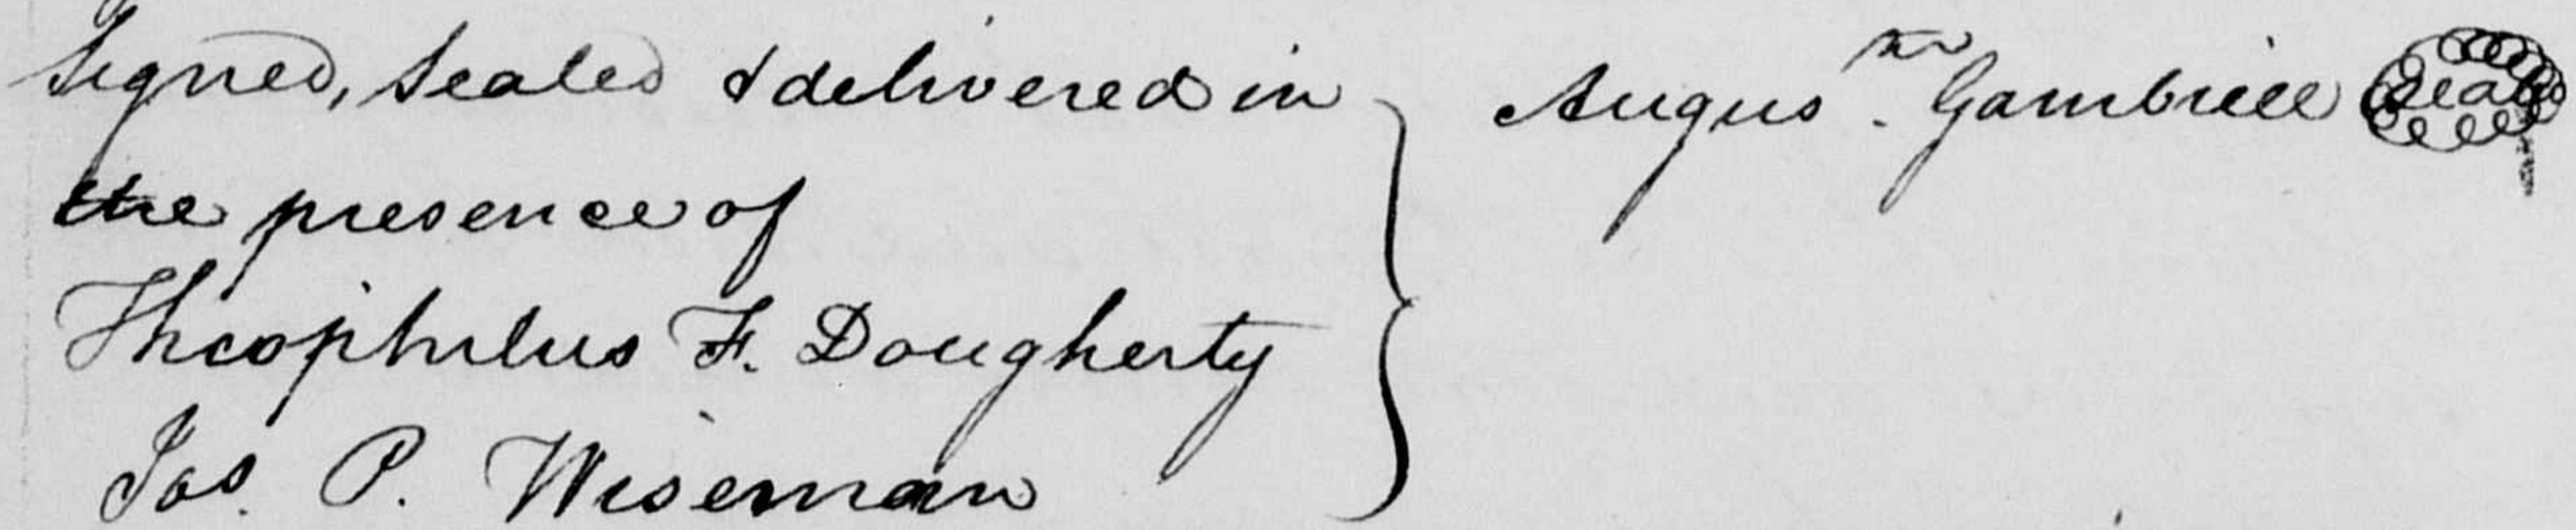 Signed, Sealed & delivered in
the presence of
Theophilus F. Dougherty
Jas. P. Wiseman
Augus. tn Gambrill Seal